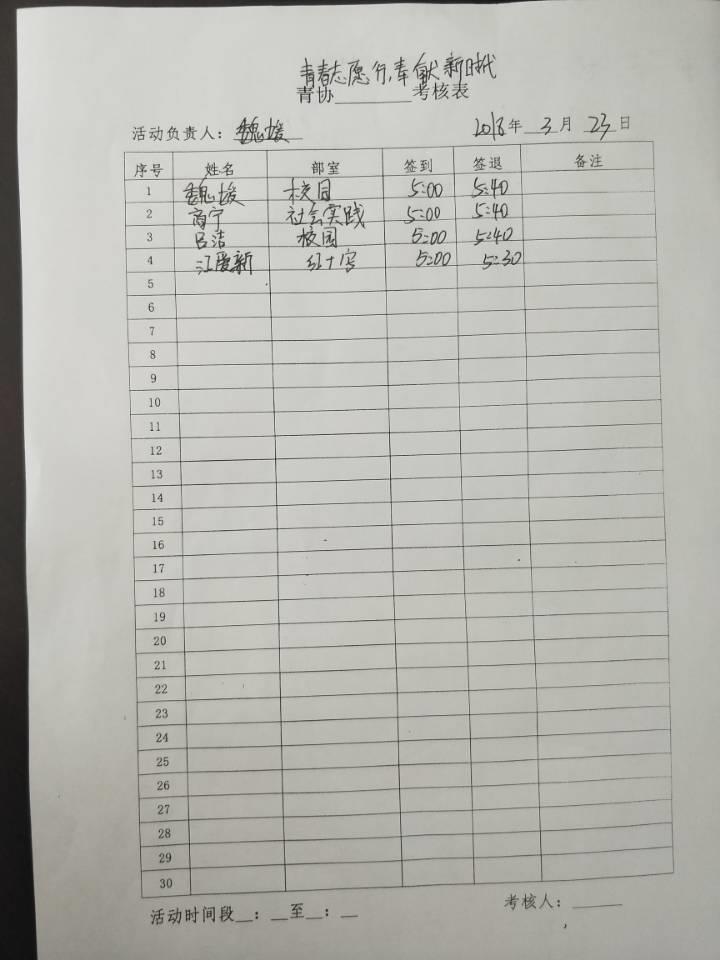 青春志愿行，奉献新时代
青协________考核表
活动负责人：魏媛 2018年 3月 23日
序号 姓名 部室 签到 签退 备注
1 魏媛 校园 5:00 5:40
2 商宁 社会实践 5:00 5:40
3 吕洁 校园 5:00 5:40
4 江爱新 红十字 5:00 5:30
5
6
7
8
9
10
11
12
13
14
15
16
17
18
19
20
21
22
23
24
25
26
27
28
29
30
活动时间段__：__至__：__ 考核人：______